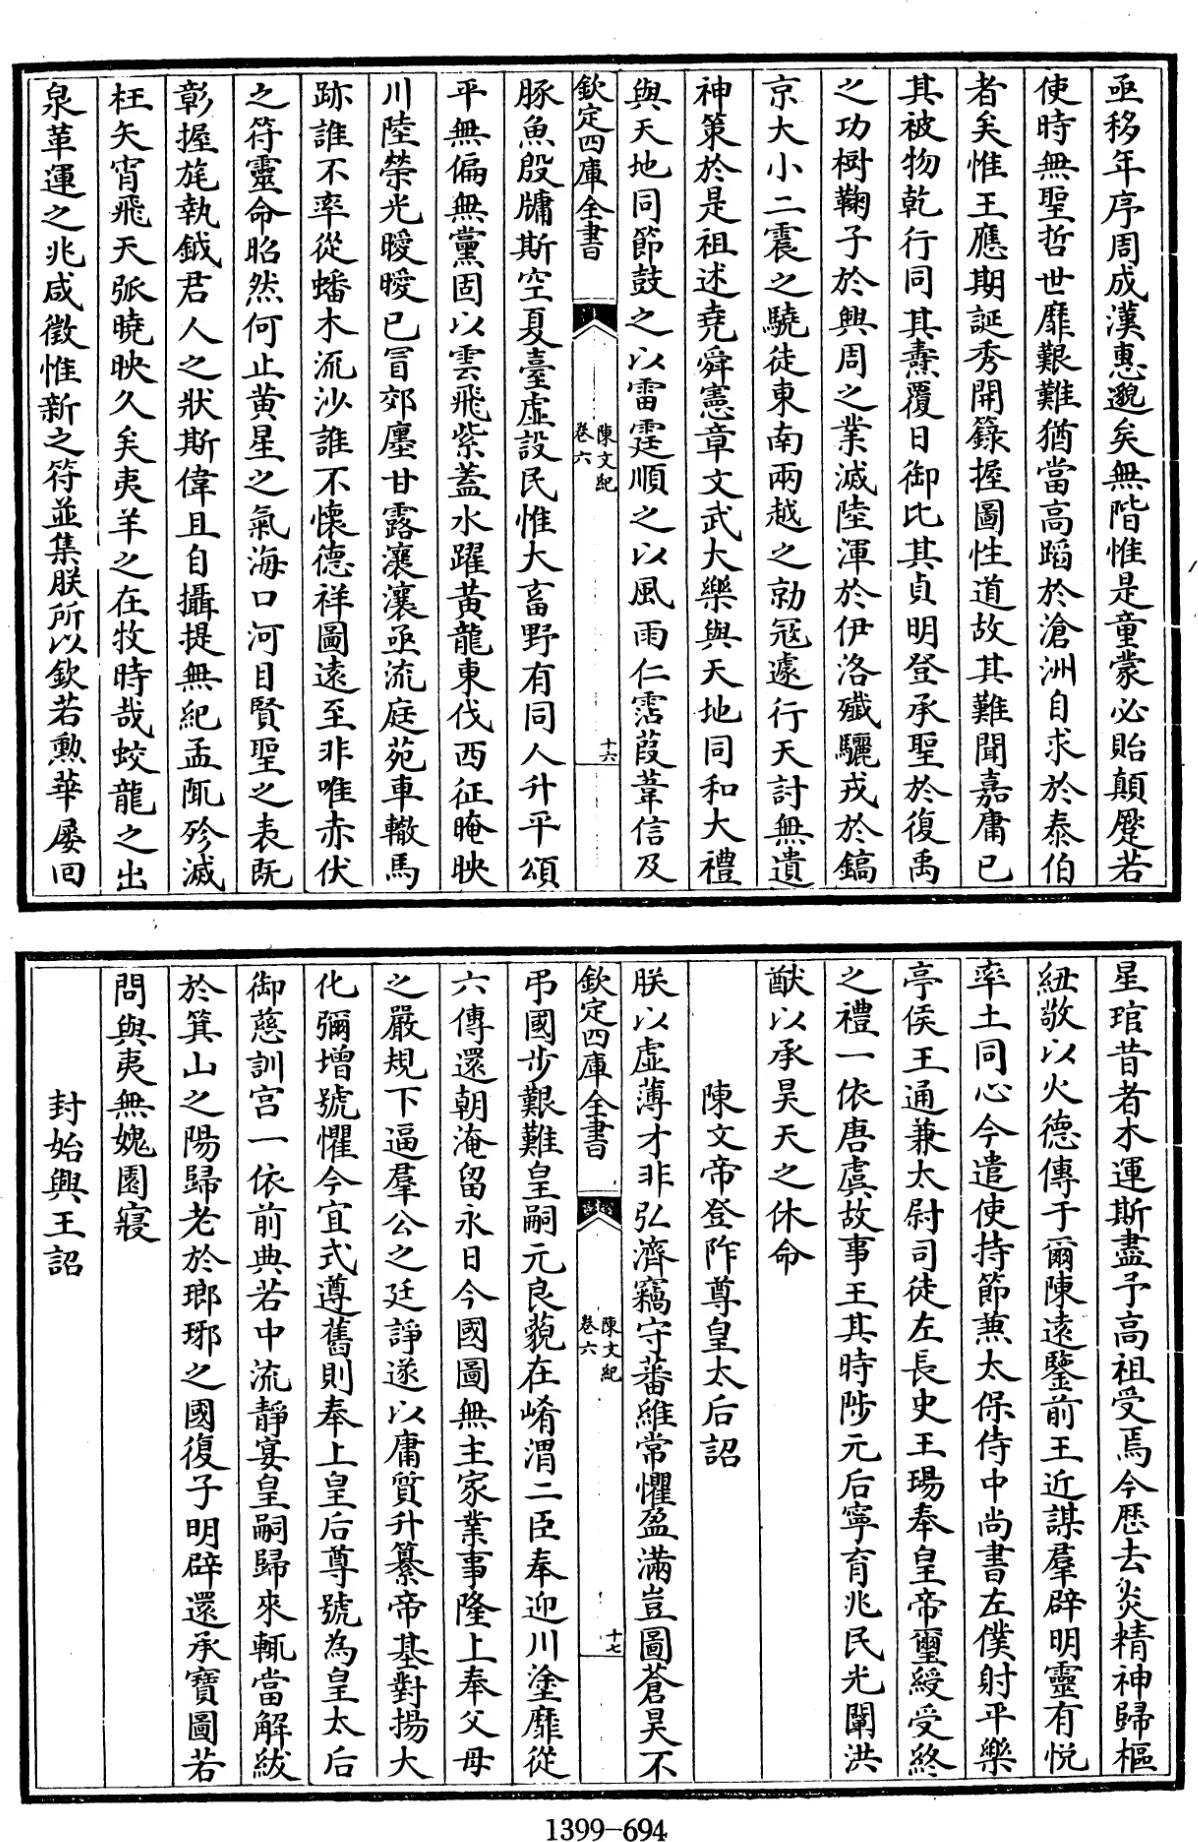 亟移年序周成漢惠邈矣無階惟是童蒙必貽顛蹷若
使時無聖哲世靡艱難猶當高蹈於滄洲自求於泰伯
者矣惟王應期誕秀開籙握圖性道故其難聞嘉庸已
其被物乾行同其燾覆日御比其貞明登承聖於復禹
之功樹鞠子於興周之業滅陸渾於伊洛殲驪戎於鎬
京大小二震之驍徒東南兩越之勍冦遽行天討無遺
神策於是祖述堯舜憲章文武大樂與天地同和大禮
與天地同節鼓之以雷霆順之以風雨仁霑葭葦信及
欽定四庫全書
陳文紀
卷六
十六
豚魚殷牖斯空夏臺虛設民惟大畜野有同人升平頌
平無偏無黨固以雲飛紫蓋水躍黃龍東伐西征晻映
川陸榮光曖曖已冐郊廛甘露瀼瀼亟流庭苑車轍馬
跡誰不率從蟠木流沙誰不懷德祥圖遠至非唯赤伏
之符靈命昭然何止黄星之氣海口河目賢聖之表既
彰握旄執鉞君人之狀斯偉且自攝提無紀孟陬殄滅
枉矢宵飛天弧曉映久矣夷羊之在牧時哉蛟龍之出
泉革運之兆咸徵惟新之符並集朕所以欽若勲華屢回
星琯昔者木運斯盡予高祖受焉今歴去炎精神歸樞
紐敬以火德傳于爾陳遠鑒前王近謀羣辟明靈有悦
率土同心今遣使持節兼太保侍中尚書左僕射平樂
亭侯王通兼太尉司徒左長史王瑒奉皇帝璽綬受終
之禮一依唐虞故事王其時陟元后寧育兆民光闡洪
猷以承昊天之休命
陳文帝登阼尊皇太后詔
朕以虛薄才非弘濟竊守蕃維常懼盈滿豈圖蒼昊不
欽定四庫全書
陳文紀
卷六
十七
弔國步艱難皇嗣元良藐在崤渭二臣奉迎川塗靡從
六傳還朝淹留永日今國圖無主家業事隆上奉父母
之嚴規下逼羣公之廷諍遂以庸質升纂帝基對揚大
化彌增號懼今宜式遵舊則奉上皇后尊號為皇太后
御慈訓宫一依前典若中流靜宴皇嗣歸來輒當解紱
於箕山之陽歸老於瑯琊之國復子明辟還承寶圖若
問與夷無媿園寢
封始興王詔
1399-694